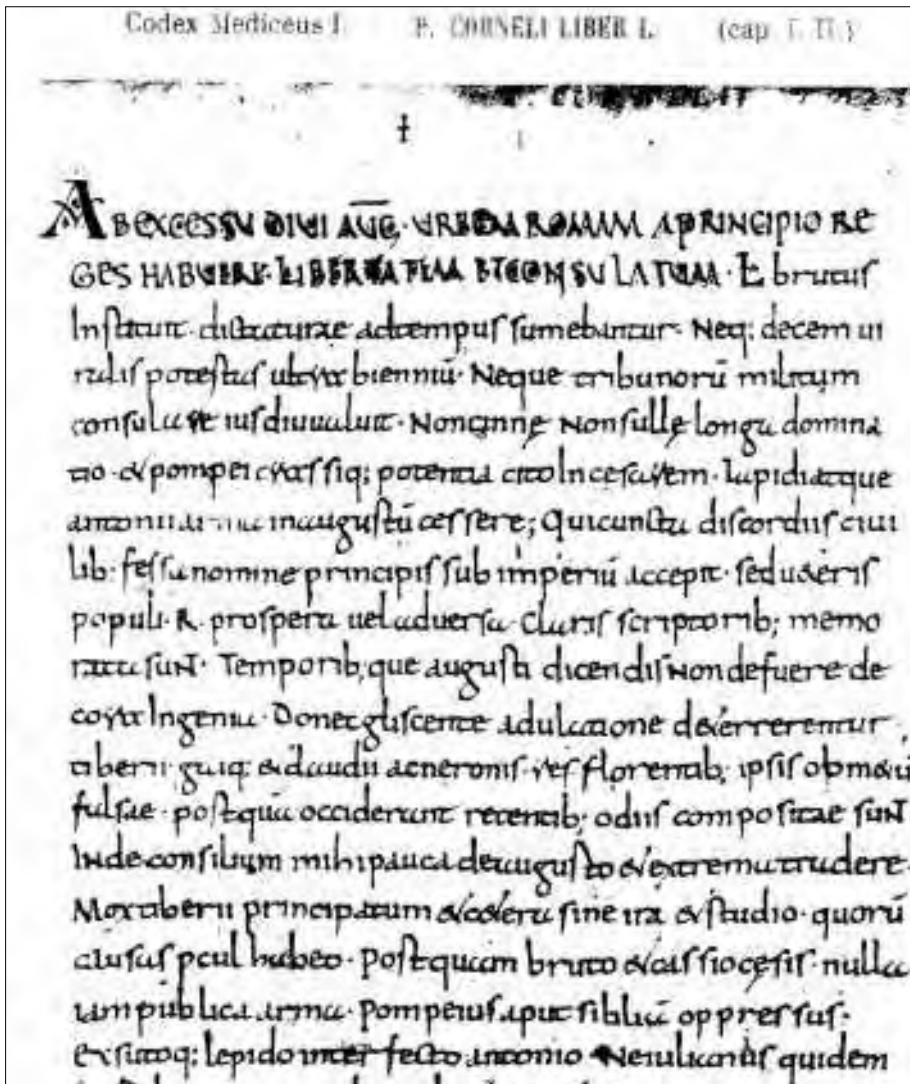 Codex Mediceus I. P. CORNELI LIBER I. (cap. I. II.)
AB EXCESSU DIVI AUG · URBEM ROMAM A PRINCIPIO RE
GES HABUERE · LIBERTATEM ET CONSULATUM · L brutus
Instituit · dictaturae adtempus sumebantur · Neq; decem ui
ralis potestas ultra bienniū · Neque tribunorū militum
consulare ius diu ualuit · Non cinnę Non sullę longa domina
tio · & pompei crassiq; potentia cito In cesarem · lapidi atque
antonii arma in augustū cessere; Qui cuncta discordiis ciui
lib; fessa nomine principis sub imperiū accepit · sed ueteris
populi · R · prospera uel aduersa · claris scriptorib; memo
rata suNT · Temporib; que augusti dicendis Non defuere de
cora Ingenia · Donec gliscente adulatione deterrerentur ·
tiberii · gaiq; & claudii ac neronis · res florentib; ipsis ob metū
falsae · postquā occiderant recentib; odiis compositae suNT
INde consilium mihi pauca de augusto & extrema tradere ·
Mox tiberii principatum & cetera sine ira & studio · quorū
causas pcul habeo · Postquam bruto & cassio cęsis · nulla
iam publica arma · Pompeius aput siciliā oppressus ·
exsutoq; lepido interfecto antonio Ne iulianis quidem